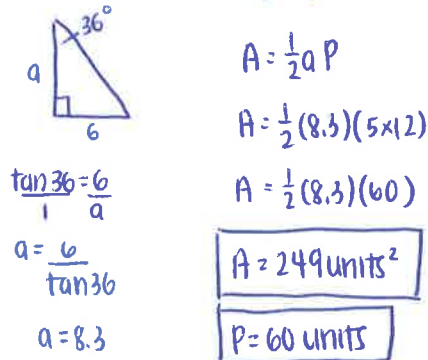 36°
a
6
tan 36 = 6
1 a
a = 6
tan 36
a = 8.3
A = 1/2 a P
A = 1/2 (8.3)(5×12)
A = 1/2 (8.3)(60)
A = 249 units²
P = 60 units